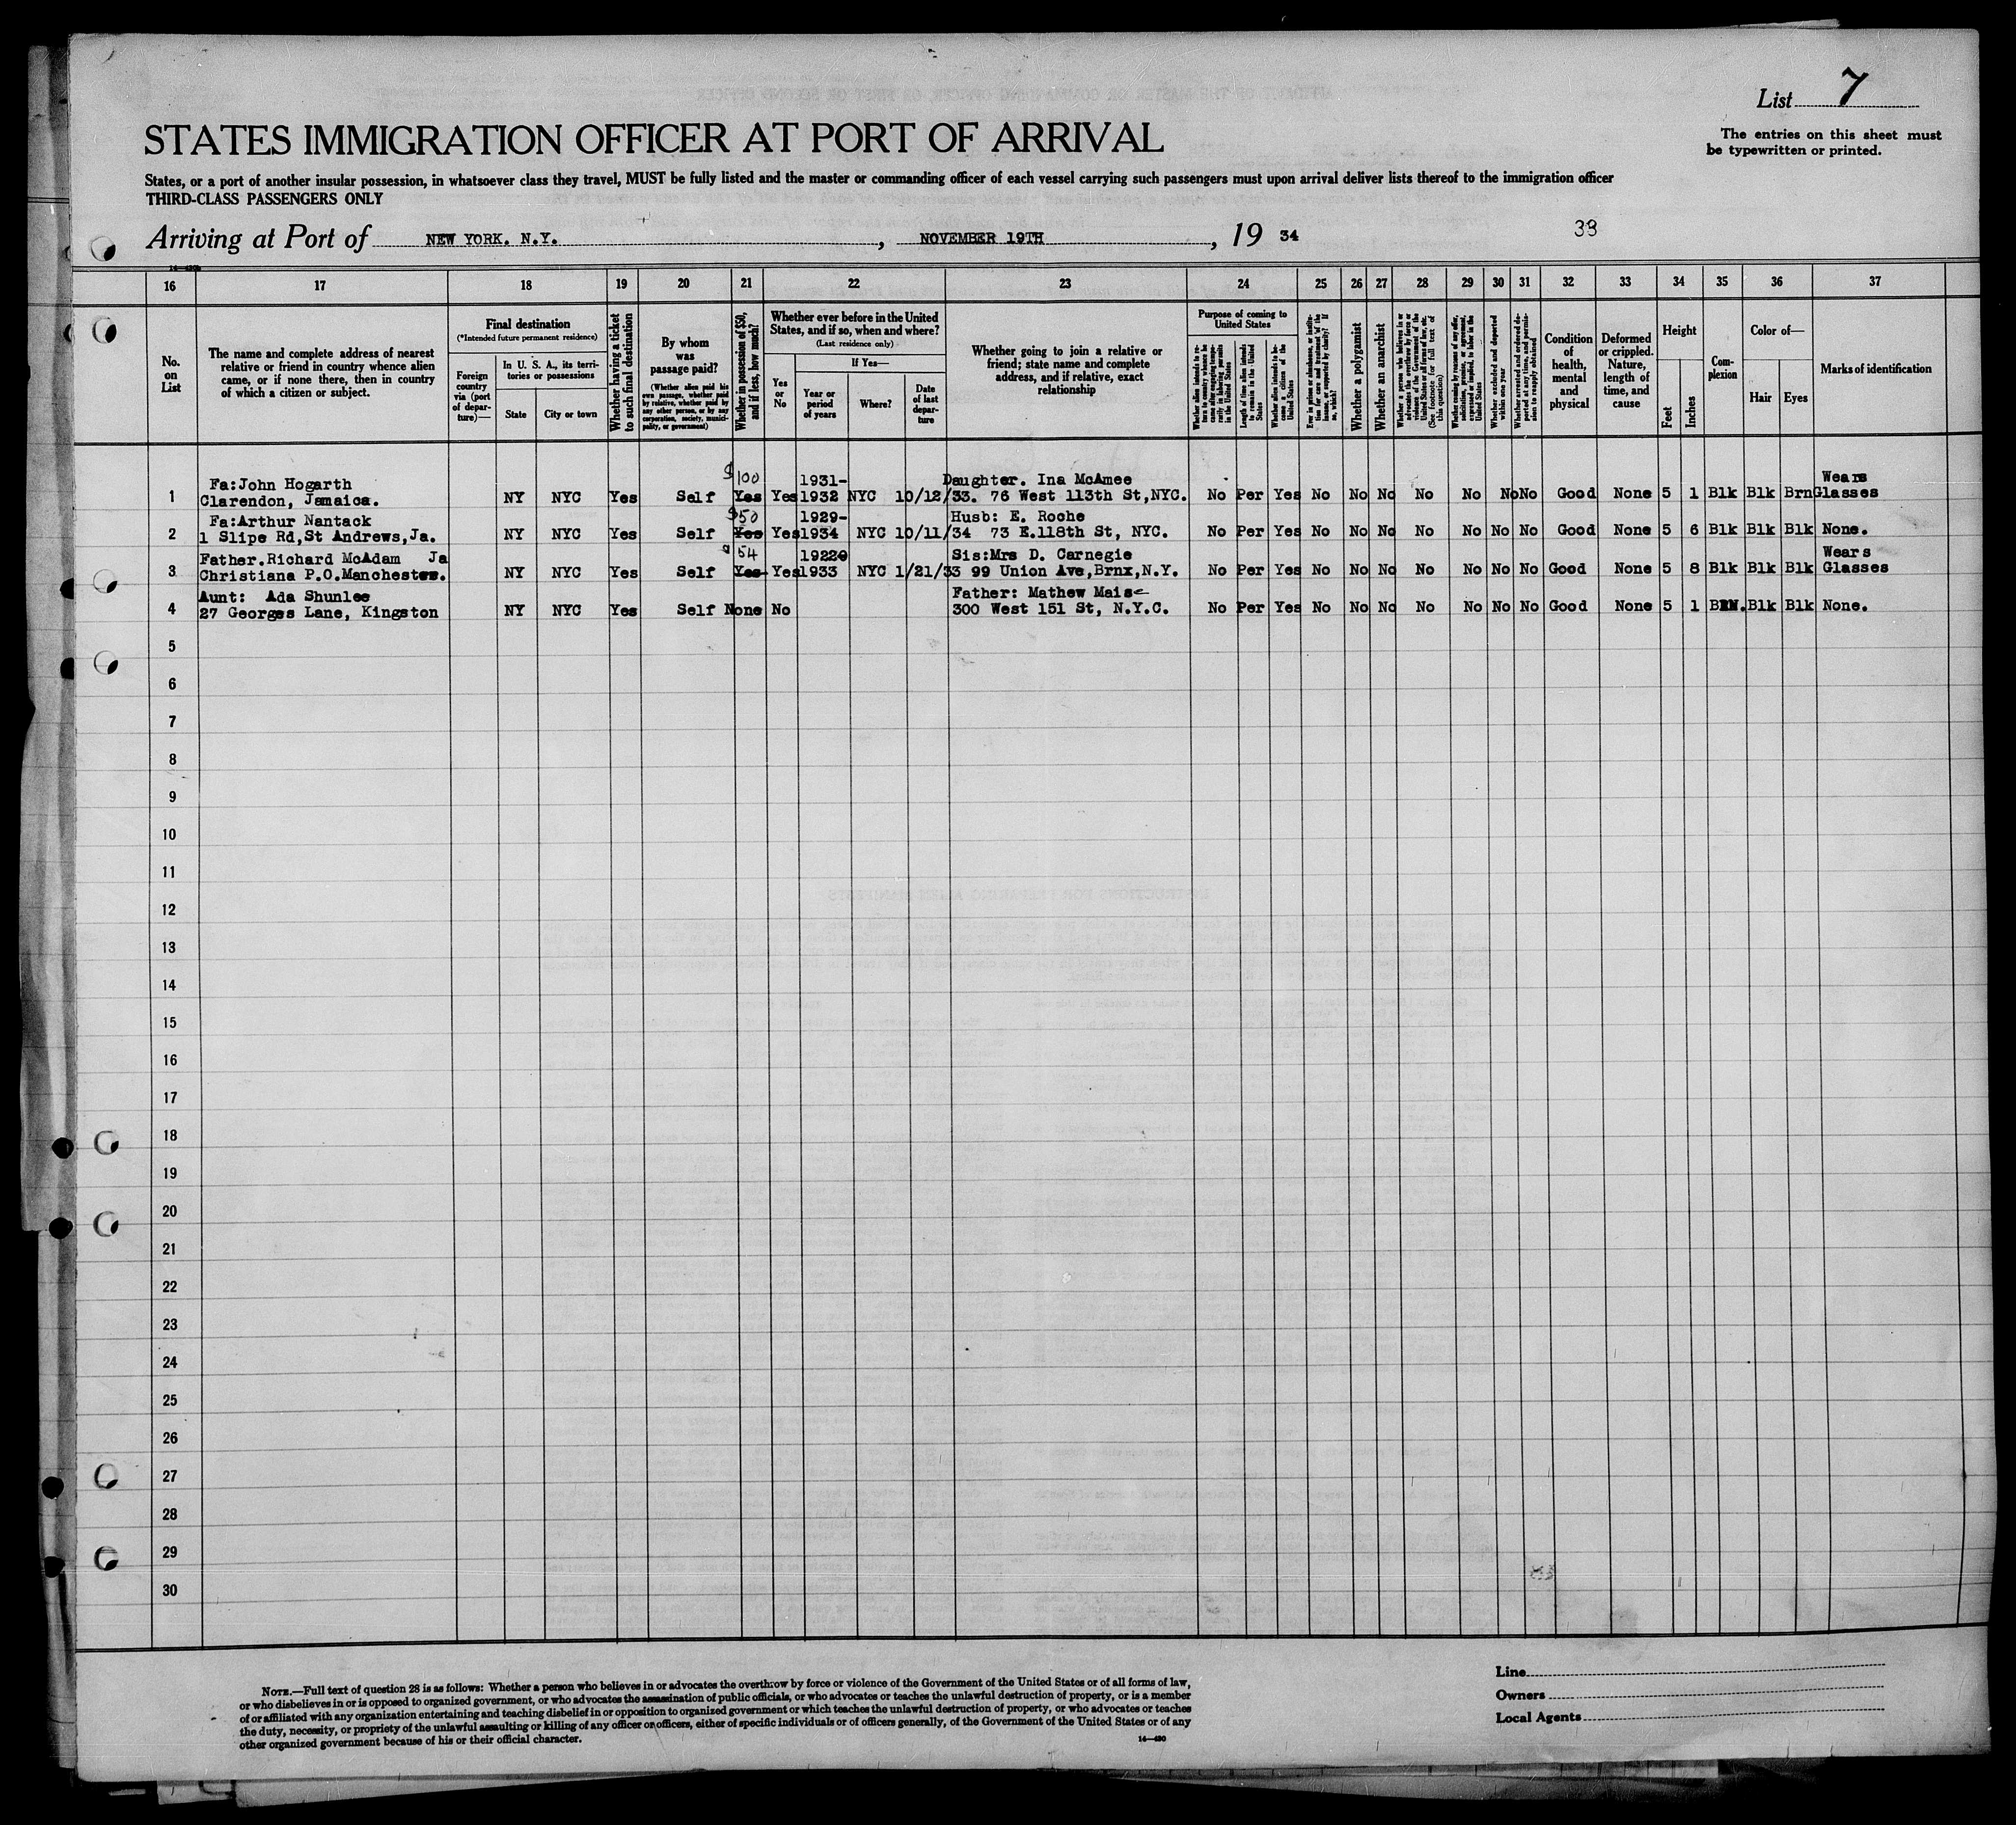 List 7
The entries on this sheet must
be typewritten or printed.
STATES IMMIGRATION OFFICER AT PORT OF ARRIVAL
States, or a port of another insular possession, in whatsoever class they travel, MUST be fully listed and the master or commanding officer of each vessel carrying such passengers must upon arrival deliver lists thereof to the immigration officer
THIRD-CLASS PASSENGERS ONLY
Arriving at Port of NEW YORK. N.Y. , NOVEMBER 19TH , 19 34 33
16 17 18 19 20 21 22 23 24 25 26 27 28 29 30 31 32 33 34 35 36 37
No.
on
List
The name and complete address of nearest
relative or friend in country whence alien
came, or if none there, then in country
of which a citizen or subject.
Final destination
(*Intended future permanent residence)
Foreign
country
via (port
of depar-
ture)—
In U. S. A., its terri-
tories or possessions
State
City or town
Whether having a ticket
to such final destination
By whom
was
passage paid?
(Whether alien paid his
own passage, whether paid
by relative, whether paid by
any other person, or by any
corporation, society, munici-
pality, or government)
Whether in possession of $50,
and if less, how much?
Whether ever before in the United
States, and if so, when and where?
(Last residence only)
Yes
or
No
If Yes—
Year or
period
of years
Where?
Date
of last
depar-
ture
Whether going to join a relative or
friend; state name and complete
address, and if relative, exact
relationship
Purpose of coming to
United States
Length of time alien intends
to remain in the United
States
Whether alien intends to be-
come a citizen of the
United States
Whether a polygamist
Whether an anarchist
Whether excluded and deported
within one year
Condition
of
health,
mental
and
physical
Deformed
or crippled.
Nature,
length of
time, and
cause
Height
Feet
Inches
Com-
plexion
Color of—
Hair
Eyes
Marks of identification
Fa:John Hogarth $100 1931- Daughter. Ina McAmee Wears
1 Clarendon, Jamaica. NY NYC Yes Self Yes Yes 1932 NYC 10/12/33. 76 West 113th St,NYC. No Per Yes No No No No No No No Good None 5 1 Blk Blk Brn Glasses
Fa:Arthur Nantack $50 1929- Husb: E. Roche
2 1 Slipe Rd,St Andrews,Ja. NY NYC Yes Self Yes Yes 1934 NYC 10/11/34 73 E.118th St, NYC. No Per Yes No No No No No No No Good None 5 6 Blk Blk Blk None.
Father.Richard McAdam Ja $54 Sis:Mrs D. Carnegie Wears
3 Christiana P.O.Manchester. NY NYC Yes Self Yes Yes 1933 NYC 1/21/33 99 Union Ave,Brnx,N.Y. No Per Yes No No No No No No No Good None 5 8 Blk Blk Blk Glasses
Aunt: Ada Shunlee Father: Mathew Mais
4 27 Georges Lane, Kingston NY NYC Yes Self None No 300 West 151 St, N.Y.C. No Per Yes No No No No No No No Good None 5 1 BRN. Blk Blk None.
5
6
7
8
9
10
11
12
13
14
15
16
17
18
19
20
21
22
23
24
25
26
27
28
29
30
NOTE.—Full text of question 28 is as follows: Whether a person who believes in or advocates the overthrow by force or violence of the Government of the United States or of all forms of law,
or who disbelieves in or is opposed to organized government, or who advocates the assassination of public officials, or who advocates or teaches the unlawful destruction of property, or is a member
of or affiliated with any organization entertaining and teaching disbelief in or opposition to organized government or which teaches the unlawful destruction of property, or who advocates or teaches
the duty, necessity, or propriety of the unlawful assaulting or killing of any officer or officers, either of specific individuals or of officers generally, of the Government of the United States or of any
other organized government because of his or their official character.
14—430
Line
Owners
Local Agents